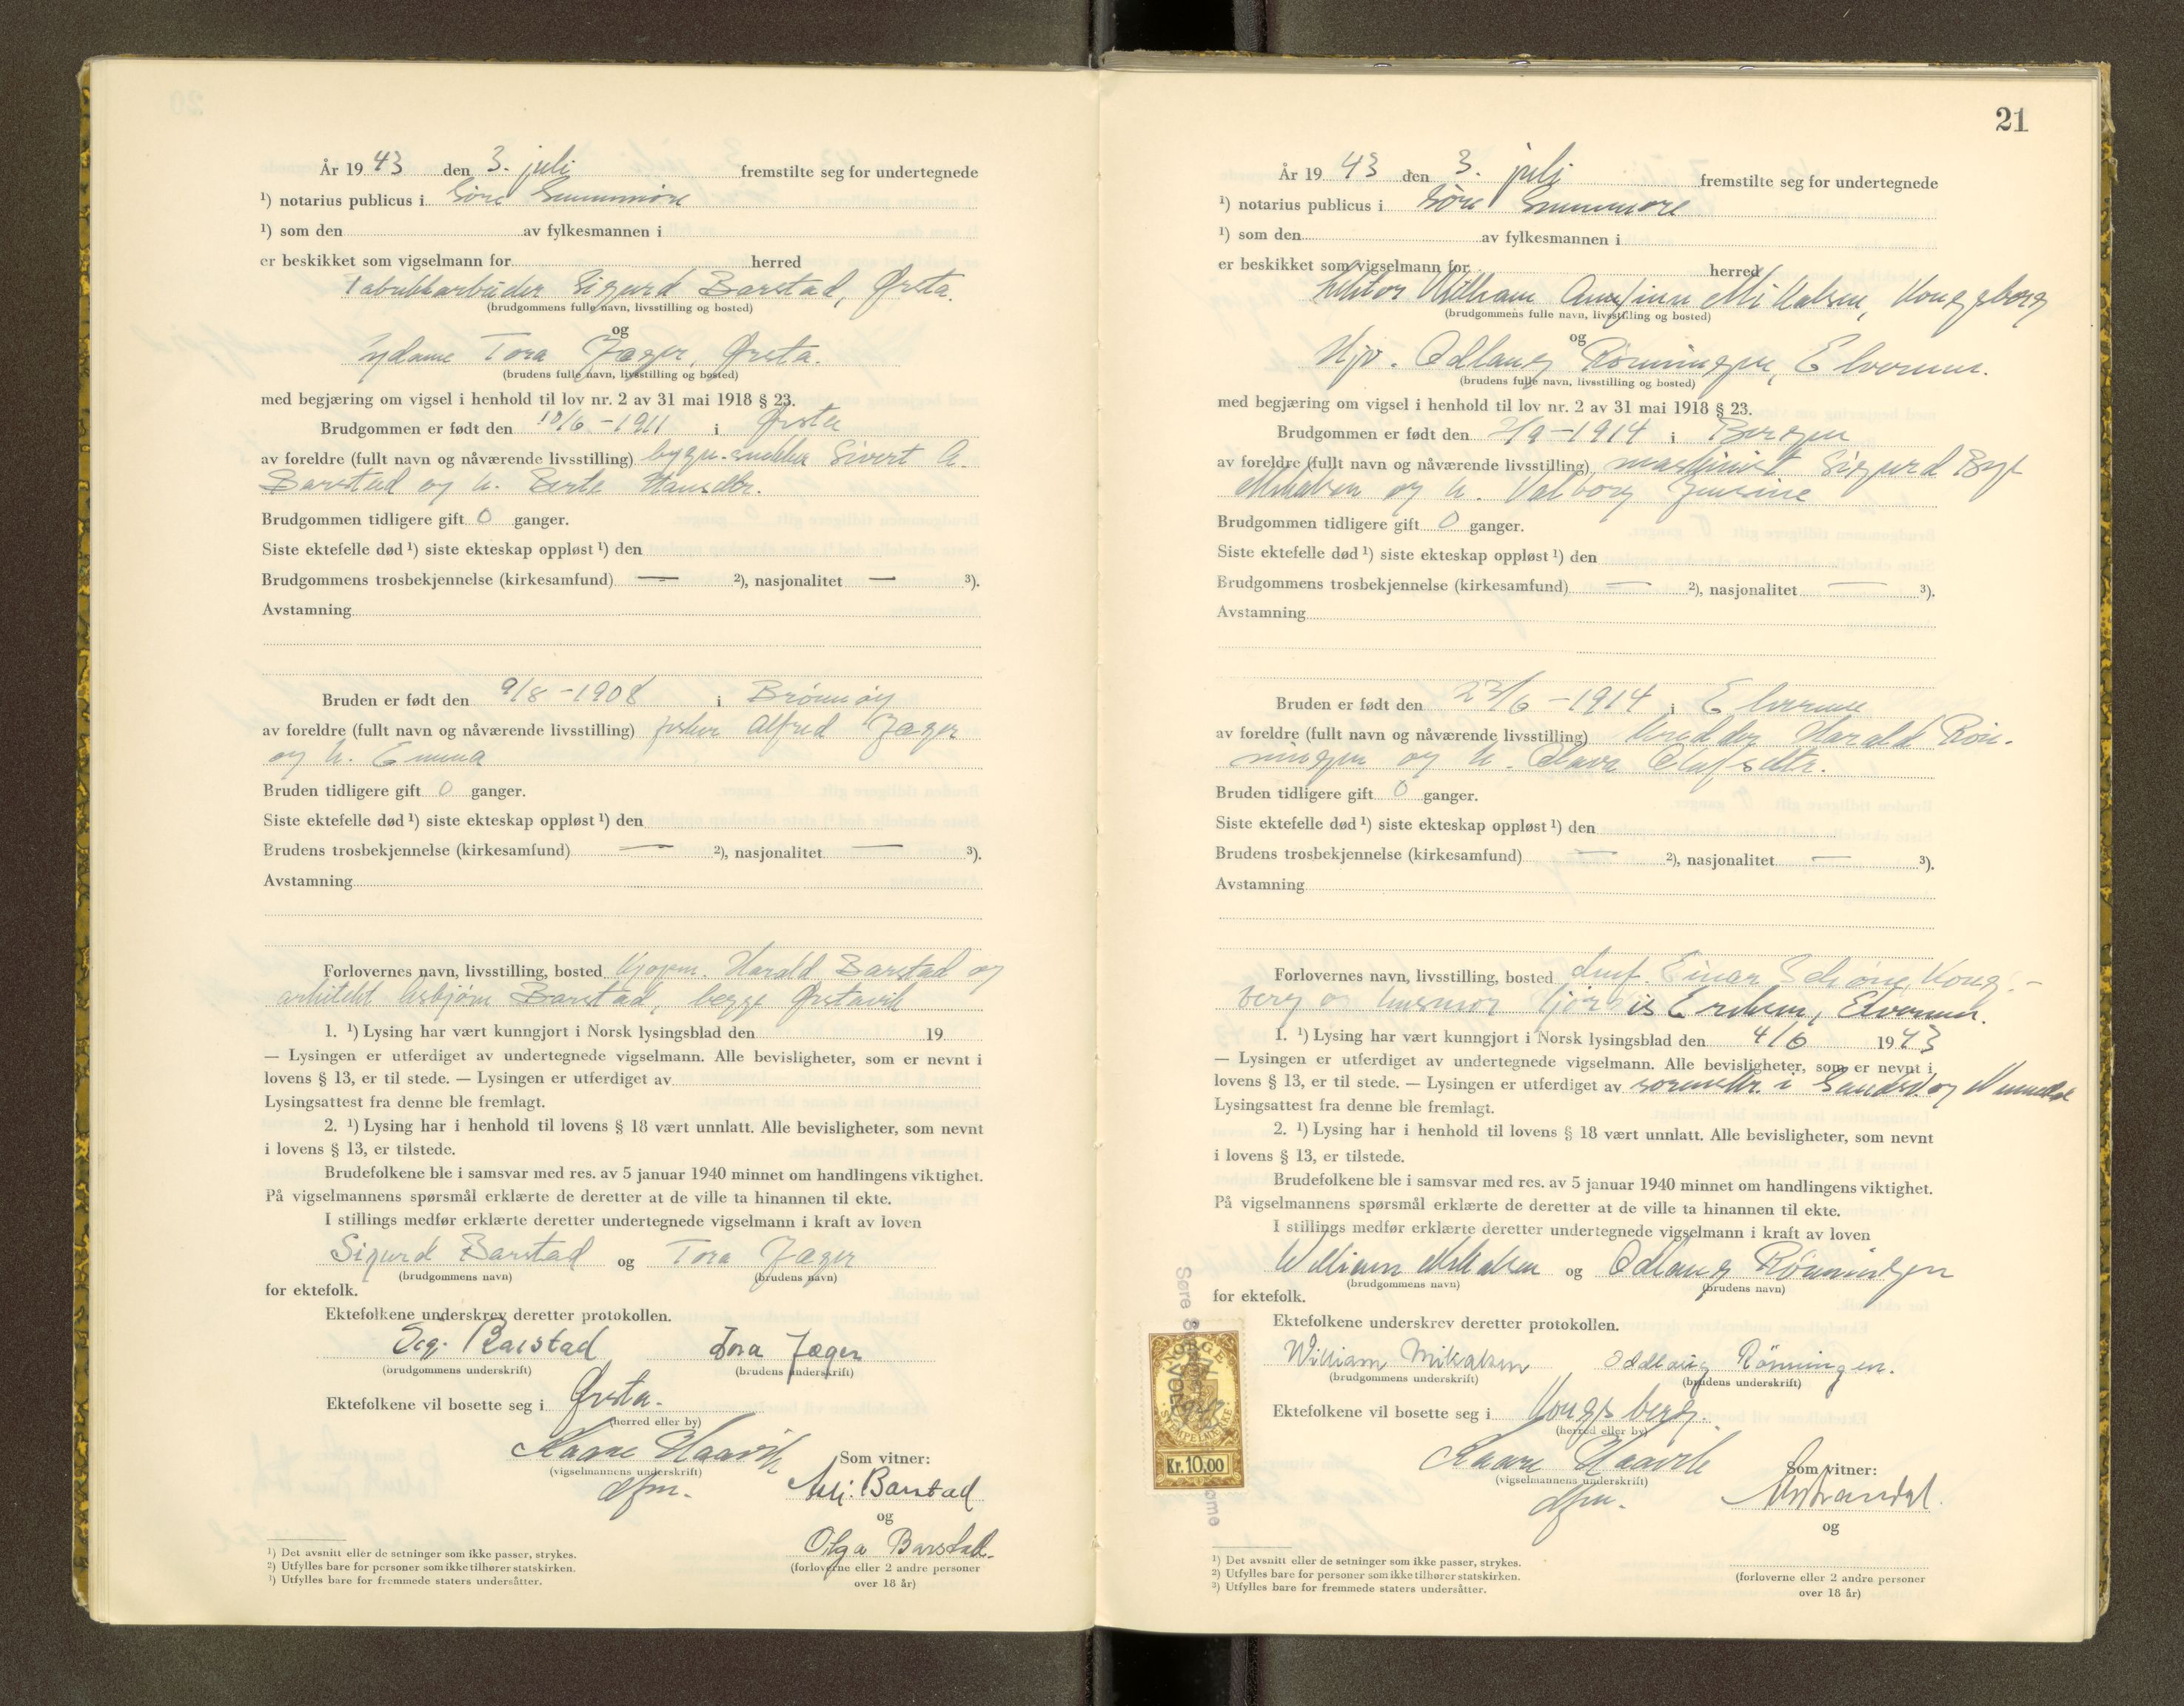 År 19 43 den 3. juli fremstilte seg for undertegnede
¹) notarius publicus i Søre Sunnmøre
¹) som den av fylkesmannen i
er beskikket som vigselmann for herred
Fabrikkarbeider Sigurd Barstad, Ørsta.
(brudgommens fulle navn, livsstilling og bosted)
og
sydame Tora Jæger, Ørsta.
(brudens fulle navn, livsstilling og bosted)
med begjæring om vigsel i henhold til lov nr. 2 av 31 mai 1918 § 23.
Brudgommen er født den 10/6 - 1911 i Ørsta
av foreldre (fullt navn og nåværende livsstilling) bygn.snekker Sivert A.
Barstad og h. Berte Hansdtr.
Brudgommen tidligere gift 0 ganger.
Siste ektefelle død ¹) siste ekteskap oppløst ¹) den
Brudgommens trosbekjennelse (kirkesamfund) — ²), nasjonalitet — ³).
Avstamning
Bruden er født den 9/8 - 1908 i Brønnøy
av foreldre (fullt navn og nåværende livsstilling) fisker Alfred Jæger
og h. Emma
Bruden tidligere gift 0 ganger.
Siste ektefelle død ¹) siste ekteskap oppløst ¹) den
Brudens trosbekjennelse (kirkesamfund) — ²), nasjonalitet — ³).
Avstamning
Forlovernes navn, livsstilling, bosted kjøpm. Harald Barstad og
arkitekt Asbjørn Barstad, begge Ørstavik
1. ¹) Lysing har vært kunngjort i Norsk lysingsblad den 19
— Lysingen er utferdiget av undertegnede vigselmann. Alle bevisligheter, som er nevnt i
lovens § 13, er til stede. — Lysingen er utferdiget av
Lysingsattest fra denne ble fremlagt.
2. ¹) Lysing har i henhold til lovens § 18 vært unnlatt. Alle bevisligheter, som nevnt
i lovens § 13, er tilstede.
Brudefolkene ble i samsvar med res. av 5 januar 1940 minnet om handlingens viktighet.
På vigselmannens spørsmål erklærte de deretter at de ville ta hinannen til ekte.
I stillings medfør erklærte deretter undertegnede vigselmann i kraft av loven
Sigurd Barstad og Tora Jæger
(brudgommens navn) (brudens navn)
for ektefolk.
Ektefolkene underskrev deretter protokollen.
Sig. Barstad Tora Jæger
(brudgommens underskrift) (brudens underskrift)
Ektefolkene vil bosette seg i Ørsta.
(herred eller by)
Kaare Haavik
Som vitner:
(vigselmannens underskrift)
dfm.
Barstad
og
Olga Barstad.
(forloverne eller 2 andre personer
over 18 år)
¹) Det avsnitt eller de setninger som ikke passer, strykes.
²) Utfylles bare for personer som ikke tilhører statskirken.
³) Utfylles bare for fremmede staters undersåtter.
21
År 19 43 den 3. juli fremstilte seg for undertegnede
¹) notarius publicus i Søre Sunnmøre
¹) som den av fylkesmannen i
er beskikket som vigselmann for herred
Lektor William Arnfinn Mikalsen, Kongsberg
(brudgommens fulle navn, livsstilling og bosted)
og
Odlaug Rønningen, Elverum.
(brudens fulle navn, livsstilling og bosted)
med begjæring om vigsel i henhold til lov nr. 2 av 31 mai 1918 § 23.
Brudgommen er født den 2/9 - 1914 i Bergen
av foreldre (fullt navn og nåværende livsstilling) maskinist Sigurd
Mikalsen og h. Valborg Jensine
Brudgommen tidligere gift 0 ganger.
Siste ektefelle død ¹) siste ekteskap oppløst ¹) den
Brudgommens trosbekjennelse (kirkesamfund) — ²), nasjonalitet — ³).
Avstamning
Bruden er født den 23/6 - 1914 i Elverum
av foreldre (fullt navn og nåværende livsstilling) Harald Røn-
ningen og h. Olava Olafsdtr.
Bruden tidligere gift 0 ganger.
Siste ektefelle død ¹) siste ekteskap oppløst ¹) den
Brudens trosbekjennelse (kirkesamfund) — ²), nasjonalitet — ³).
Avstamning
Forlovernes navn, livsstilling, bosted Einar Schöne, Kongs-
berg og husmor Hjørdis Eriksen, Elverum.
1. ¹) Lysing har vært kunngjort i Norsk lysingsblad den 4/6 19 43
— Lysingen er utferdiget av undertegnede vigselmann. Alle bevisligheter, som er nevnt i
lovens § 13, er til stede. — Lysingen er utferdiget av sorenskr. i Sandsv. og Numedal
Lysingsattest fra denne ble fremlagt.
2. ¹) Lysing har i henhold til lovens § 18 vært unnlatt. Alle bevisligheter, som nevnt
i lovens § 13, er tilstede.
Brudefolkene ble i samsvar med res. av 5 januar 1940 minnet om handlingens viktighet.
På vigselmannens spørsmål erklærte de deretter at de ville ta hinannen til ekte.
I stillings medfør erklærte deretter undertegnede vigselmann i kraft av loven
William Mikalsen og Odlaug Rønningen
(brudgommens navn) (brudens navn)
for ektefolk.
Ektefolkene underskrev deretter protokollen.
William Mikalsen Oddlaug Rønningen.
(brudgommens underskrift) (brudens underskrift)
Ektefolkene vil bosette seg i Kongsberg.
(herred eller by)
Kaare Haavik
Som vitner:
(vigselmannens underskrift)
dfm.
og
(forloverne eller 2 andre personer
over 18 år)
NORGE
STEMPELMERKE
Kr. 10,00
¹) Det avsnitt eller de setninger som ikke passer, strykes.
²) Utfylles bare for personer som ikke tilhører statskirken.
³) Utfylles bare for fremmede staters undersåtter.